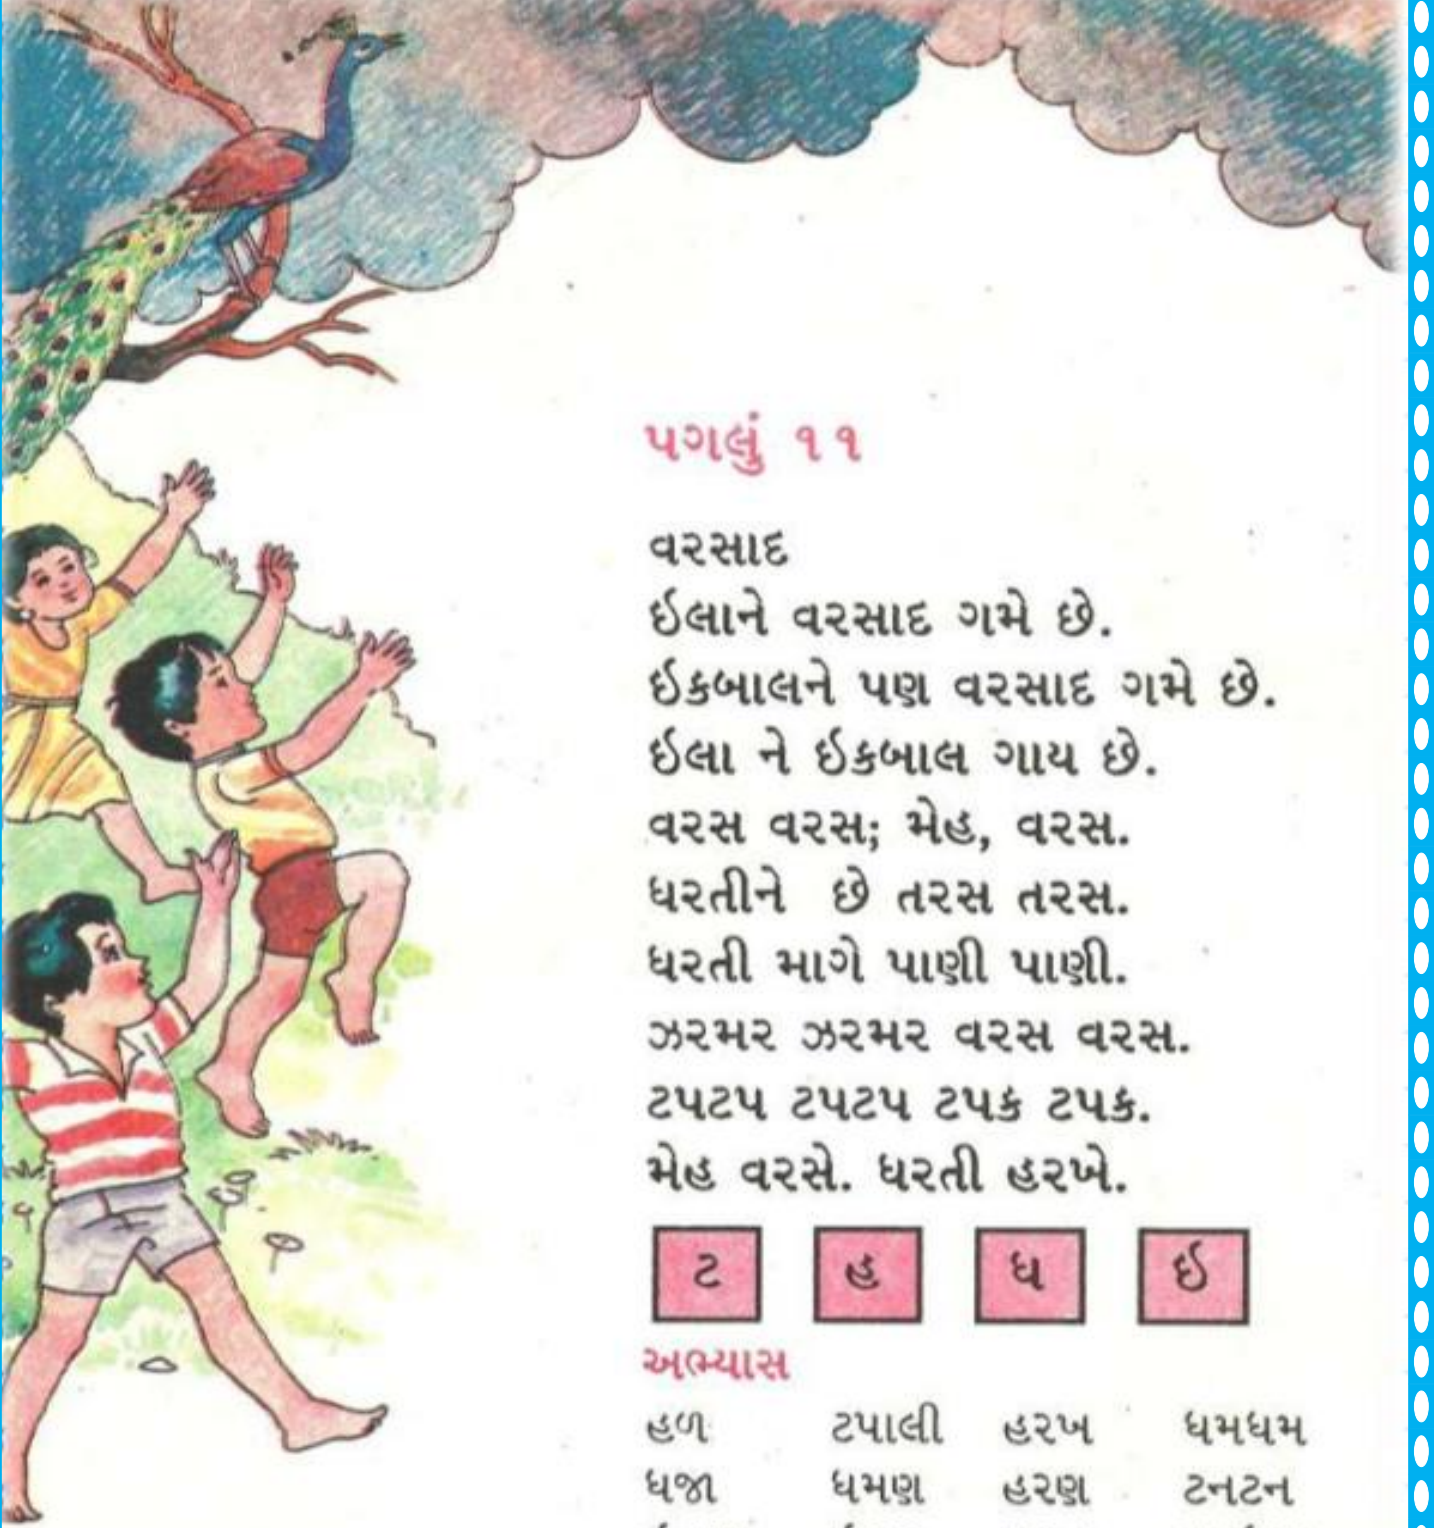 પગલું ૧૧
વરસાદ
ઇલાને વરસાદ ગમે છે.
ઇકબાલને પણ વરસાદ ગમે છે.
ઇલા ને ઇકબાલ ગાય છે.
વરસ વરસ; મેહ, વરસ.
ધરતીને છે તરસ તરસ.
ધરતી માગે પાણી પાણી.
ઝરમર ઝરમર વરસ વરસ.
ટપટપ ટપટપ ટપક ટપક.
મેહ વરસે. ધરતી હરખે.
ટ હ ધ ઇ
અભ્યાસ
હળ ટપાલી હરખ ધમધમ
ધજા ધમણ હરણ ટનટન